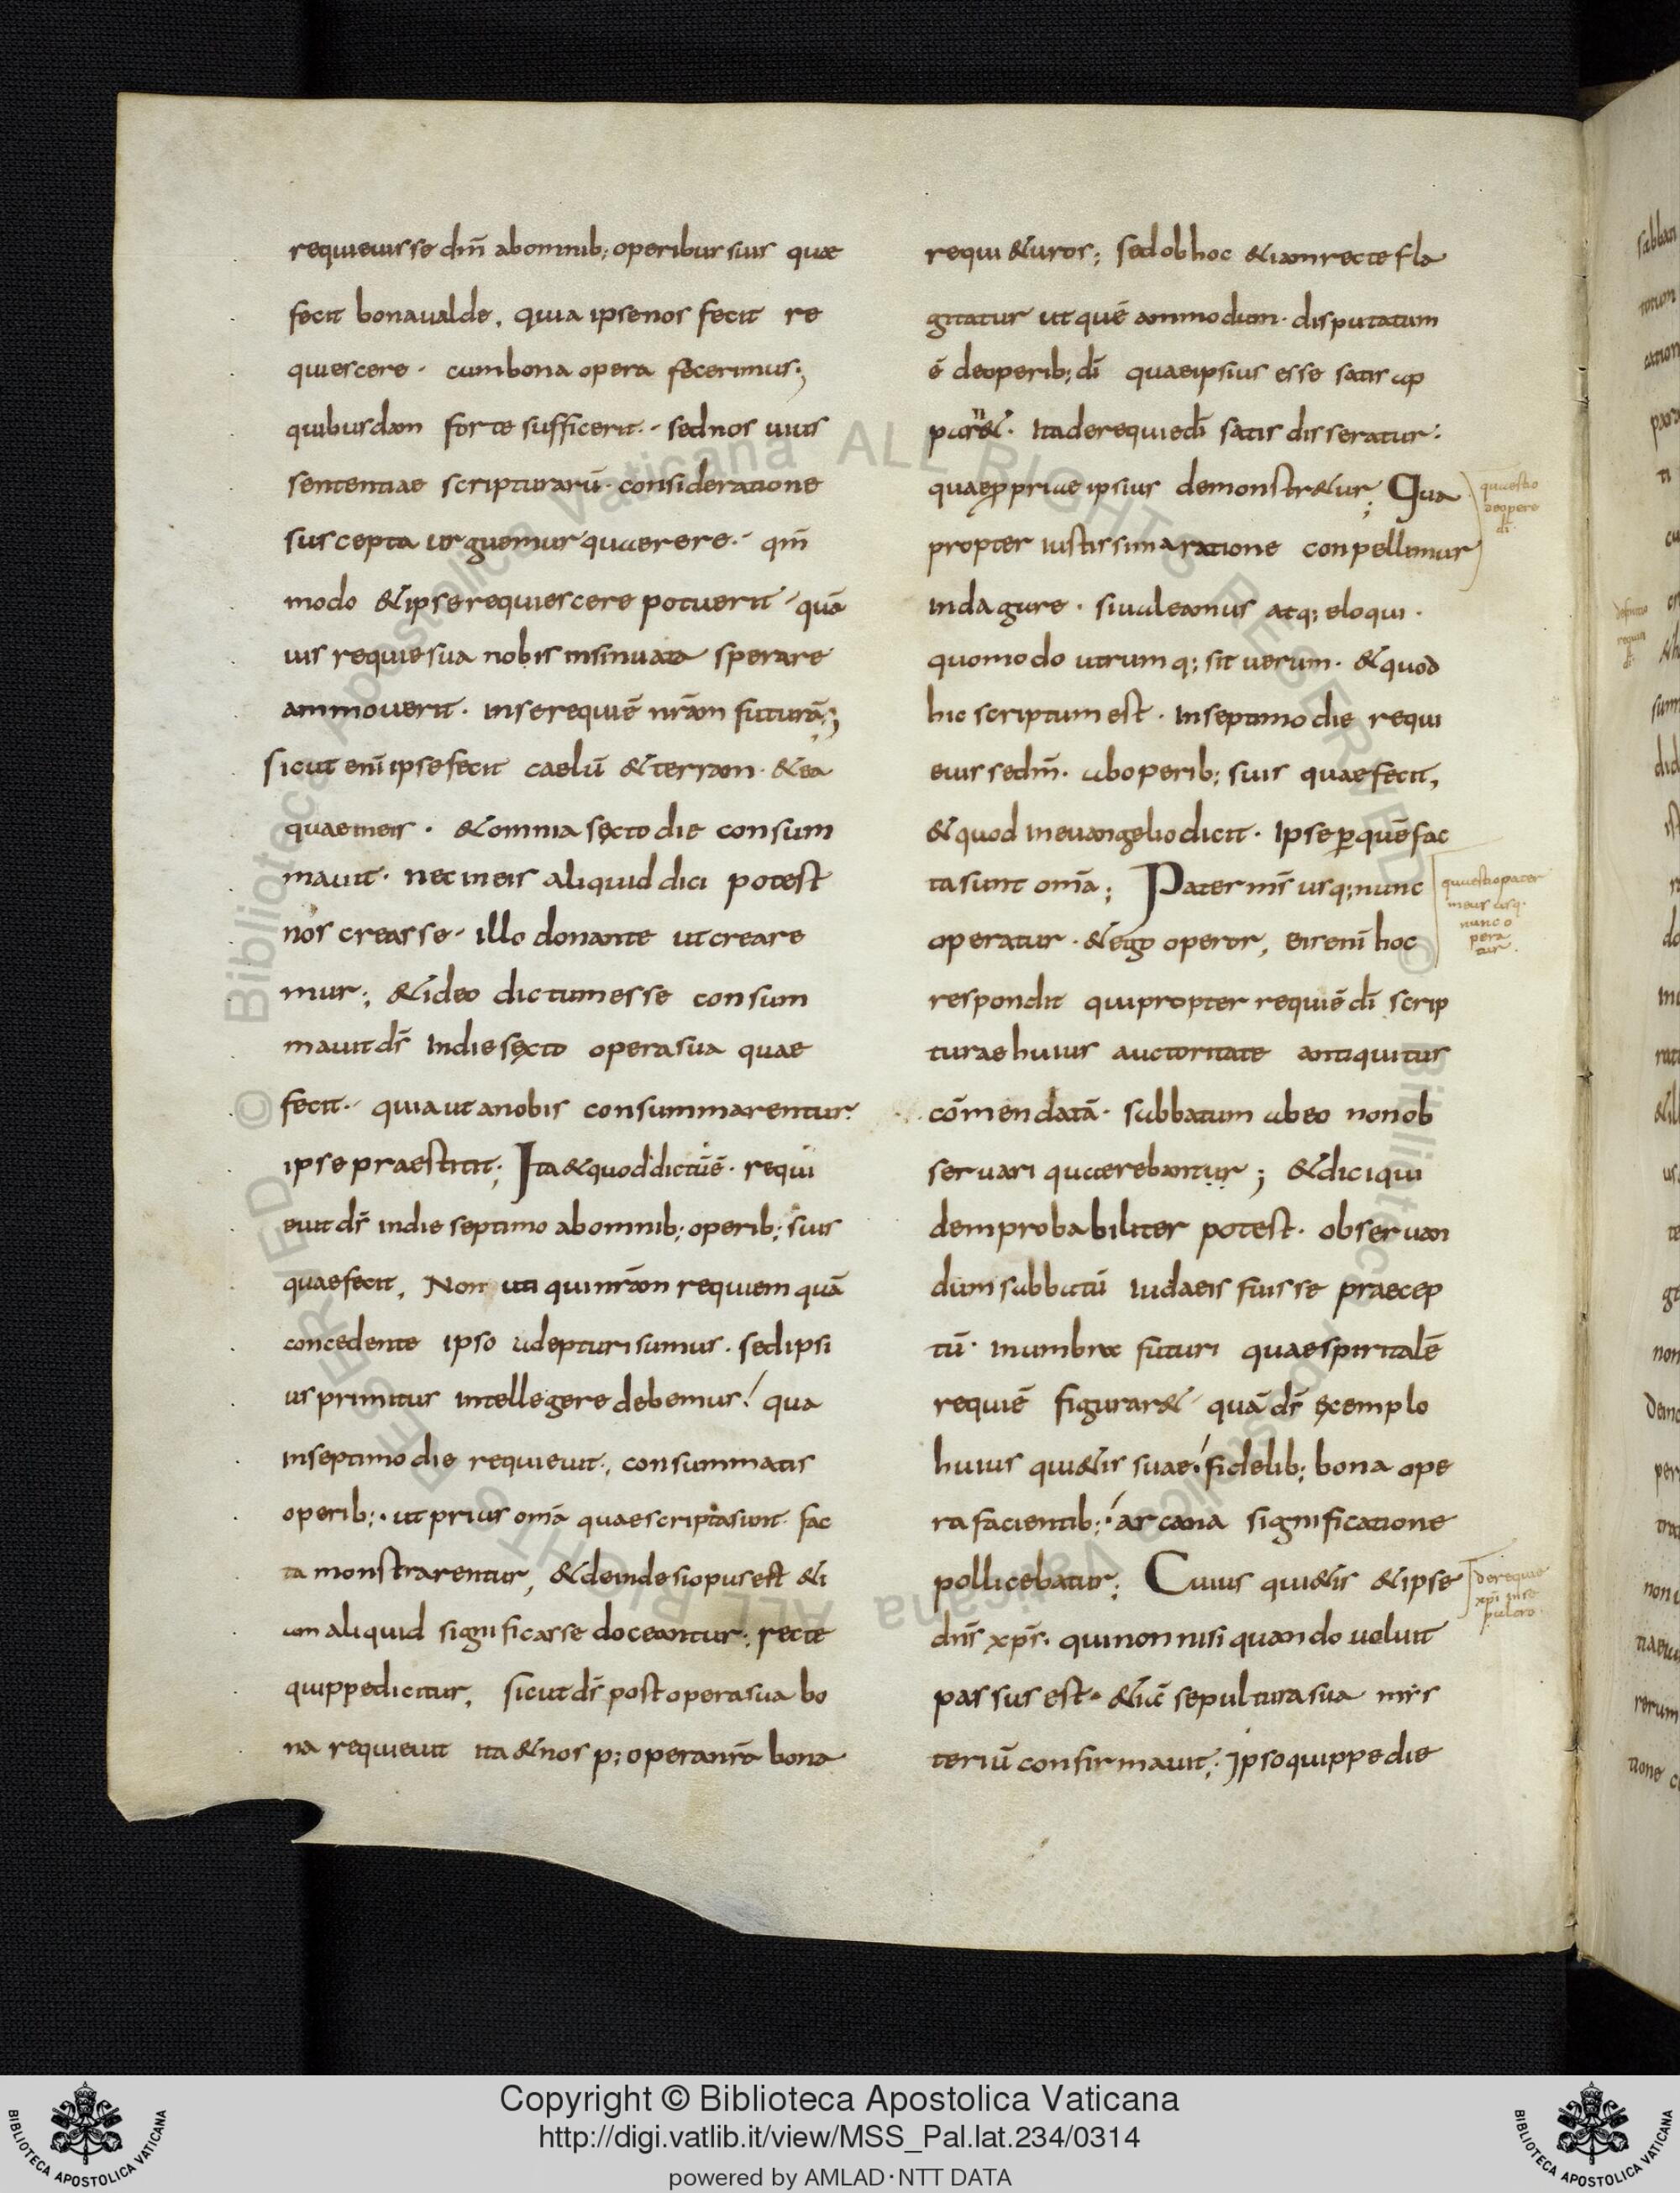 requieuisse dm̄ abomnib; operibus suis quae
fecit bonaualde, quia ipsenos fecit re
quiescere · cumbona opera fecerimus;
quibusdam forte sufficerit · sednos uius
sententiae scripturarū · consideratione
suscepta urguemur quaerere · qm̄
modo & ipserequiescere potuerit · quā
uis requiesua nobis insinuata sperare
ammouerit · inserequiē nr̄am futurā;
sicut enī ipsefecit caelū & terram · & ea
quaeineis · & omnia sęcto die consum
mauit · nec ineis aliquid dici potest
nos creasse · illo donante ut creare
mur; & ideo dictumesse consum
mauit ds̄ indiesęcto operasua quae
fecit · quia ut anobis consummarentur
ipse praestitit; Ita & quod dictū ē · requi
euit ds̄ indie septimo abomnib; operib; suis
quaefecit, Non uti qui nr̄am requiem quā
concedente ipso adepturisumus · sedipsi
us primitus intellegere debemus! qua
inseptimo die requieuit, consummatis
operib; · ut prius om̄a quaescriptasunt fac
ta monstrarentur, & deindesiopusest & i
am aliquid significasse doceantur; recte
quippedicitur, sicut ds̄ post operasua bo
na requieuit ita & nos p; operanr̄a bona
requi&uros; sedobhoc & iamrecte fla
gitatur ut quē ammodum · disputatum
ē deoperib; dī quaeipsius esse satis ap
par& · Itaderequiedī satis disseratur ·
quaeproprivae ipsius demonstr&ur; Qua
propter iustissima ratione conpellimur
indagare · siualeamus atq; eloqui ·
quomodo utrumq; sit uerum · & quod
hic scriptum est · Inseptimo die requi
euissedm̄ · aboperib; suis quaefecit,
& quod ineuangelio dicit · Ipse per quē fac
tasunt om̄a; Pater m̄s usq; nunc
operatur · & ego operor, eis enī hoc
respondit quipropter requiē dī scrip
turae huius auctoritate antiquitus
cōmendatā · sabbatum abeo nonob
seruari quaerebantur; & diciqui
demprobabiliter potest · obseruan
dum sabbatū iudaeis fuisse praecep
tū · inumbrae futuri quaespiritalē
requiē figurar& quā ds̄ ęcemplo
huius qui&is suae · fidelib; bona ope
ra facientib; · arcana significatione
pollicebatur; Cuius qui&is & ipse
dn̄s xp̄s · quinonnisi quando uoluit
passus est · & iā sepulturasua mỹs
teriū confirmauit; Ipsoquippe die
quaestio
deopere
dī
quaestio pater
meus usq;
nunc o
pera
tur ·
de requie
xp̄i in se
pulcro ·
Copyright © Biblioteca Apostolica Vaticana
http://digi.vatlib.it/view/MSS_Pal.lat.234/0314
powered by AMLAD · NTT DATA
BIBLIOTECA APOSTOLICA VATICANA
BIBLIOTECA APOSTOLICA VATICANA